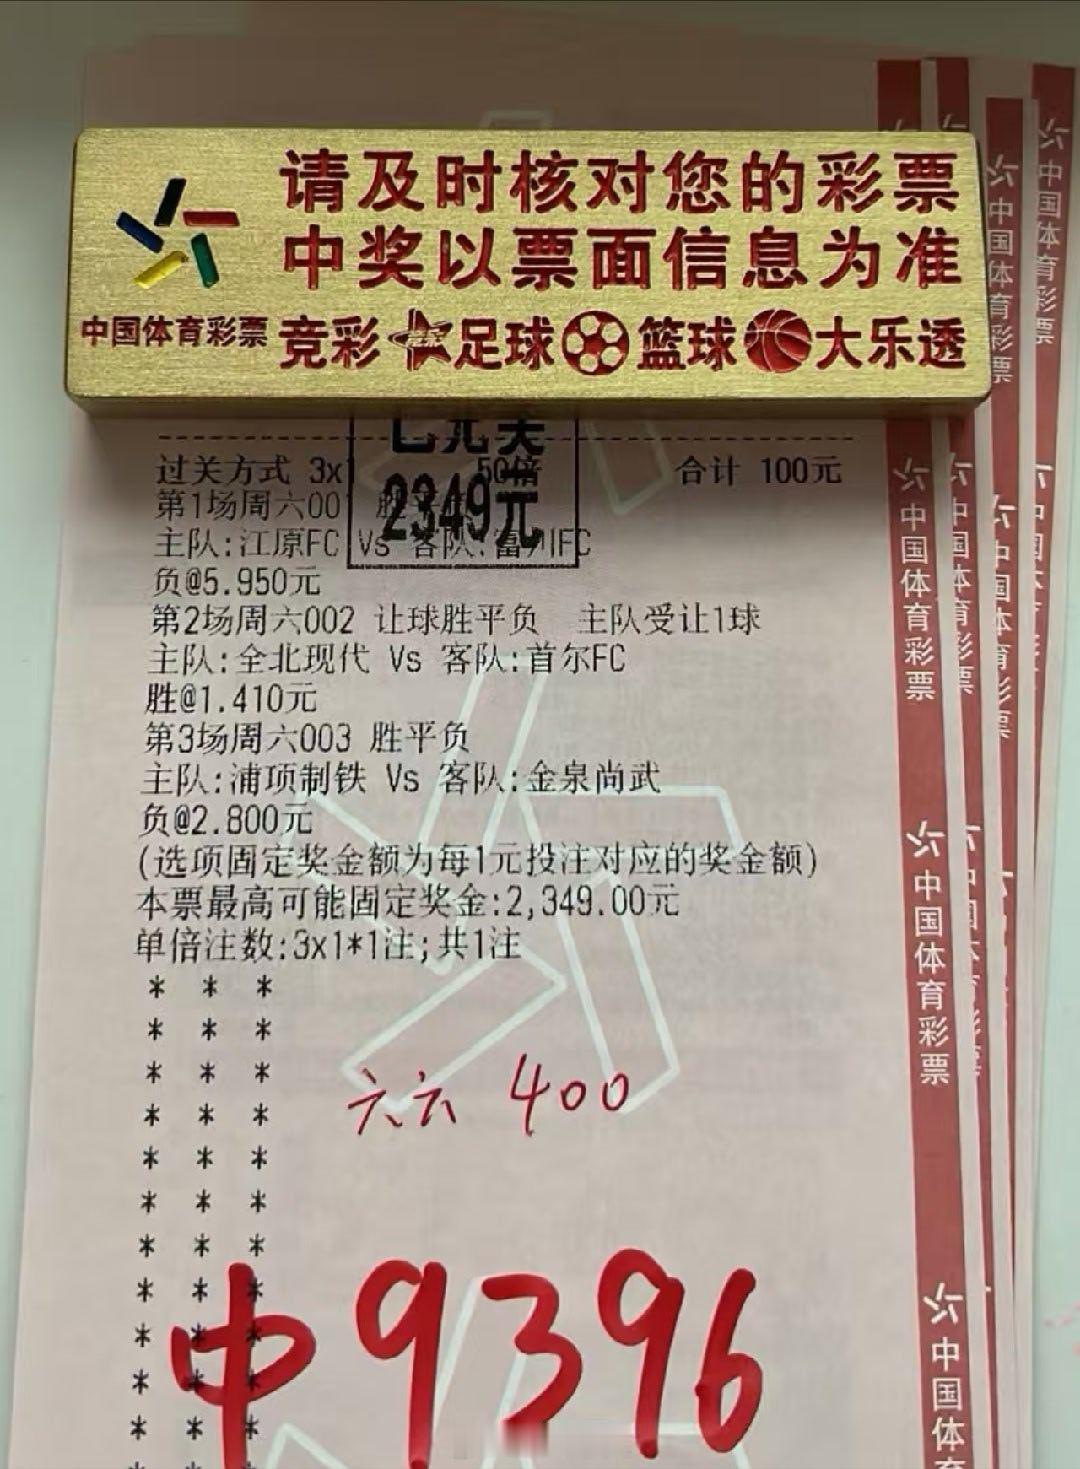 请及时核对您的彩票
中奖以票面信息为准
中国体育彩票 竞彩 足球 篮球 大乐透
2349元
过关方式 3x1 50倍 合计 100元
第1场周六001 胜平
主队:江原FC Vs 客队:富川FC
负@5.950元
第2场周六002 让球胜平负 主队受让1球
主队:全北现代 Vs 客队:首尔FC
胜@1.410元
第3场周六003 胜平负
主队:浦项制铁 Vs 客队:金泉尚武
负@2.800元
(选项固定奖金额为每1元投注对应的奖金额)
本票最高可能固定奖金:2,349.00元
单倍注数:3x1*1注;共1注
* * *
* * *
* * *
* * *
* * *
* * *
* * *
* * *
* * *
* * *
* * *
六六 400
中9396
中国体育彩票
中国体育彩票
中国体育彩票
中国体育彩票
中国体育彩票